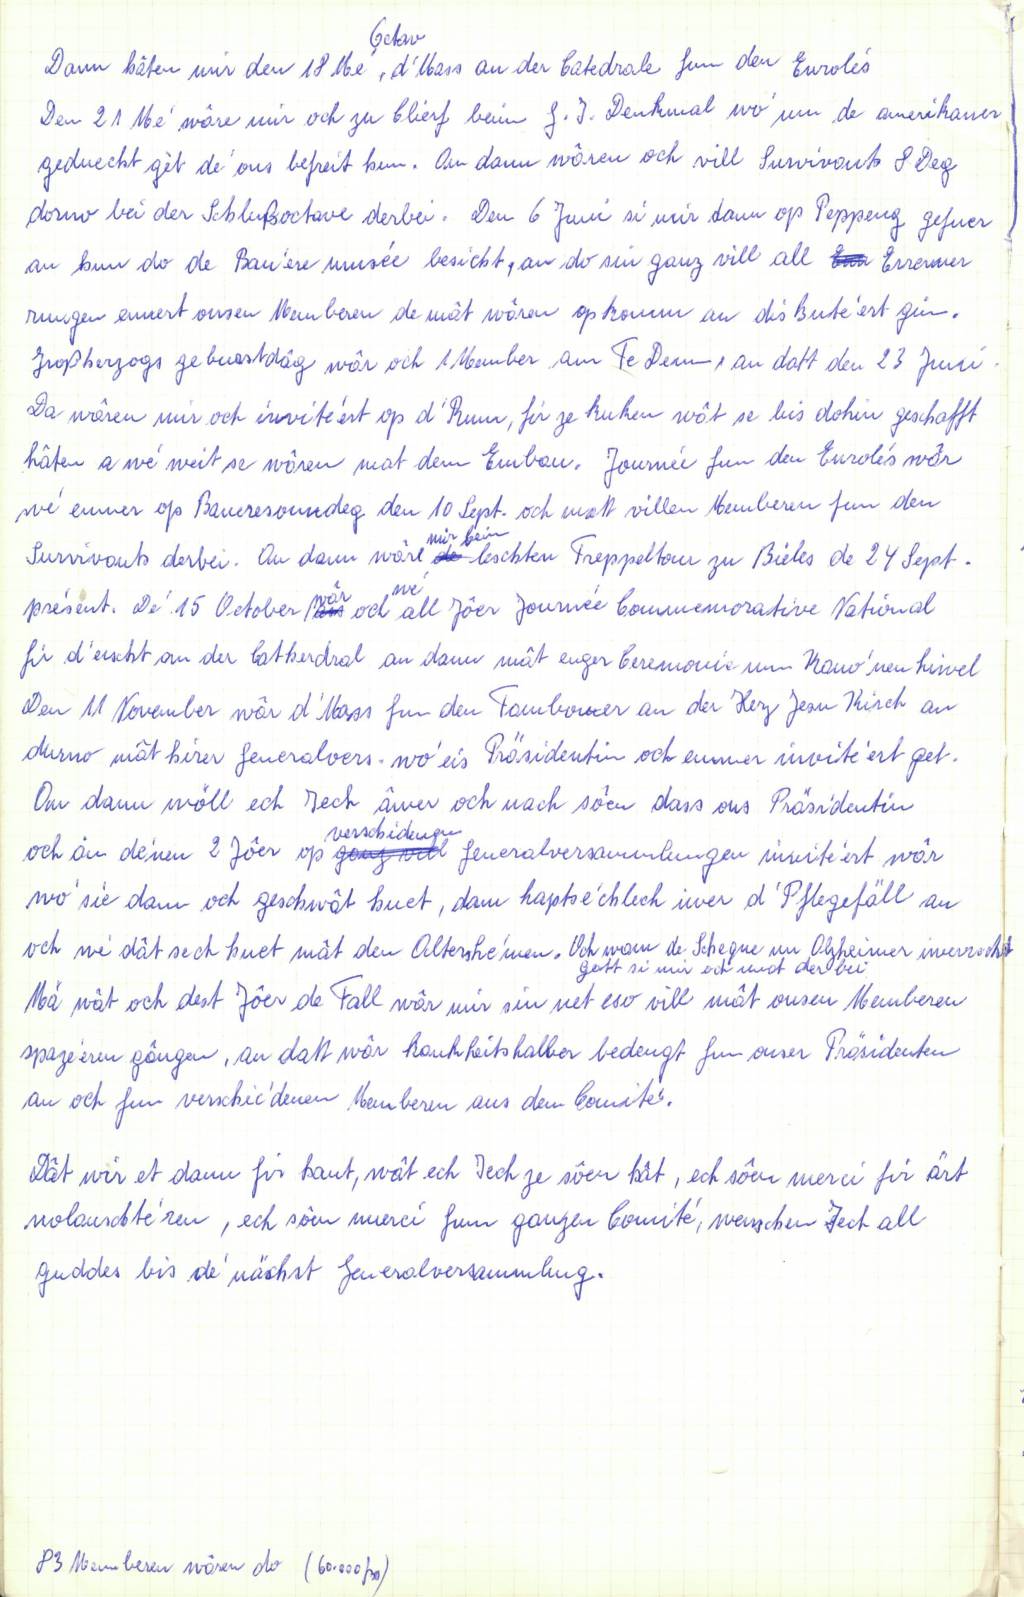 Octav
Dann hâten mir den 18 Mé, d'Mass an der Catedrale fun den Enrolés
Den 21 Mé wâre mir och zu Clierf beim G.I. Denkmal wó um de amerikaner
geduecht gët dé ons befreit hun. An dann wâren och vill Survivants 8 Deg
dorno bei der Schlußoctave derbei. Den 6 Juni si mir dann op Peppeng gefuer
an hun do de Bauere musée besicht, an do sin ganz vill all Erenner
rungen ennert onsen Memberen de mât wâren opkomm an dis
Großherzogs gebuestdâg wâr och 1 Member am Te Deum, an datt den 23 Juni.
Da wâren mir och invitéert op d'Rum, fir ze kuken wât se bis dohin geschafft
hâten a wé weit se wâren mat dem Embau. Journée fun den Enrolés wâr
wé emmer op Baueresonndeg den 10 Sept. och matt villen Memberen fun den
Survivants derbei. An dann wâre mir beim leschten Treppeltour zu Bieles de 24 Sept.
présent. Dé 15 October wâr och wé all Jôer Journée Commemorative National
fir d'eischt an der Cathedral an dann mât enger Ceremonie um Kanó'nenhiwel
Den 11 November wâr d'Mass fun den Tambouer an der Herz Jesu Kirch an
durno mât hirer Generalvers. wó eis Präsidentin och emmer invitéert get.
An dann wöll ech Iech âwer och nach sôen dass ons Präsidentin
och ân dénen 2 Jôer op verschidenen Generalversammlungen invitéert wâr
wó sie dann och geschwât huet, dann haptséchlech iwer d'Pflegefäll an
och wé dât sech huet mât den Altershémen. Och wann de Scheque un Alzheimer iwerrecht
gett si mir och mat derbei
Mâ wât och dest Jôer de Fall wâr mir sin net eso vill mât onsen Memberen
spazéeren gângen, an datt wâr krankheitshalber bedengt fun onser Präsidenten
an och fun verschiédenen Memberen aus dem Comité.
Dât wir et dann fir haut, wât ech Iech ze sôen hât, ech sôen merci fir ärt
nolauschtéren, ech sôen merci fum ganzen Comité, wenschen Iech all
guddes bis dé nächst Generalversammlung.
83 Memberen wâren do (60.000 frs)